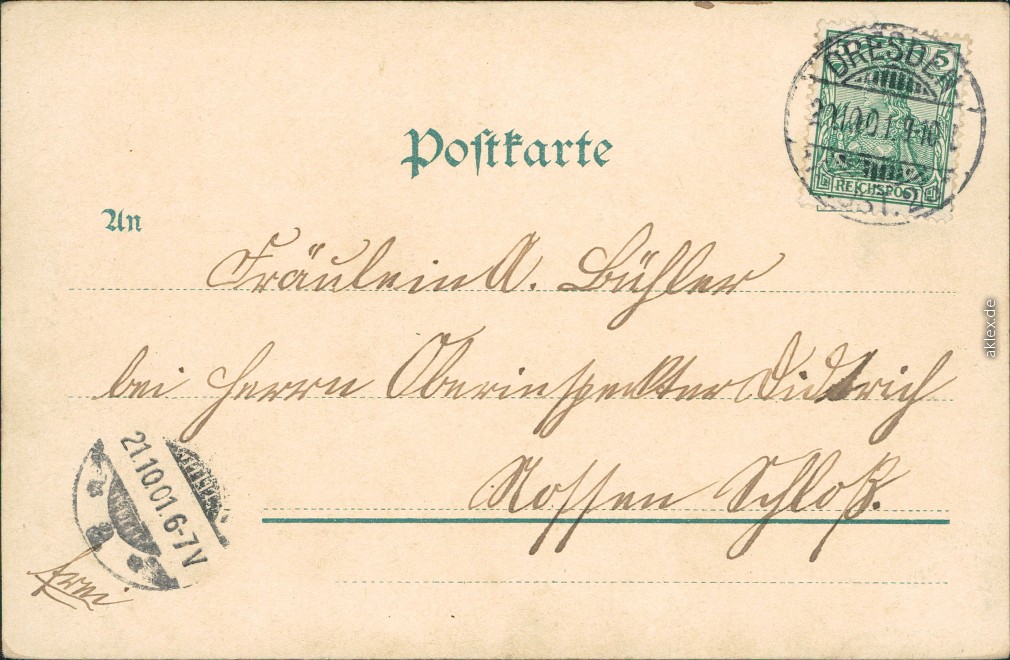 Postkarte
5
DRESDEN
20.10.01. 9-10
REICHSPOST
An
Fräulein A. Bühler
bei Herrn Oberinspektor Dietrich
Nossen Schloß.
21.10.01. 6-7V
frei
aklex.de